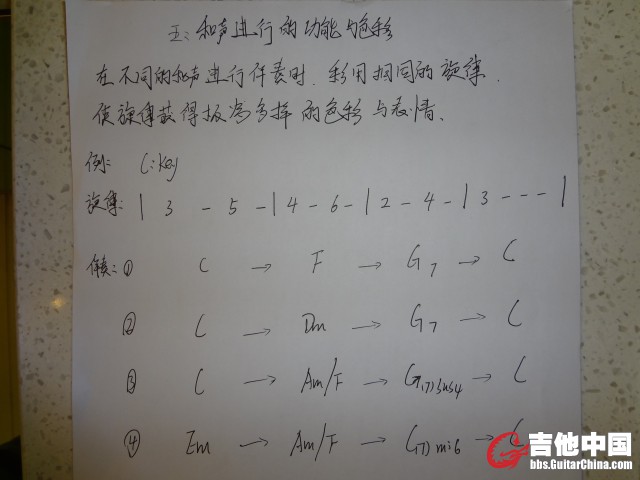 五:和声进行的功能与色彩
在不同的和声进行伴奏时.采用相同的旋律.
使旋律获得极为多样的色彩与表情、
例: C:Key
旋律: | 3 - 5 - | 4 - 6 - | 2 - 4 - | 3 - - - |
伴奏:① C → F → G7 → C
② C → Dm → G7 → C
③ C → Am/F → G(7)sus4 → C
④ Em → Am/F → G(7) → C
吉他中国
bbs.GuitarChina.com